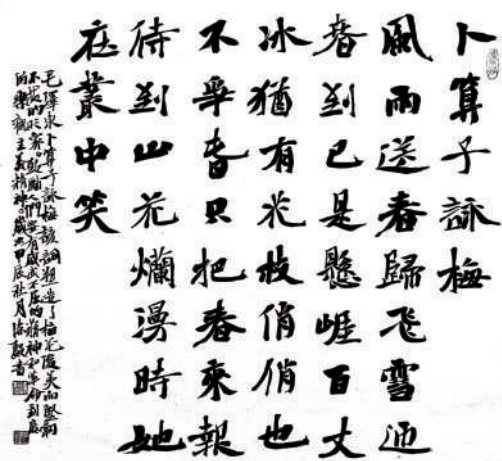 卜算子詠梅
風雨送春歸飛雪迎
春到已是懸崖百丈
冰猶有花枝俏俏也
不爭春只把春來報
待到山花爛漫時她
在叢中笑
毛澤東卜算子詠梅該詞塑造了梅花俊美而堅韌
不拔的形象。鼓勵人們要有威武不屈的精神和革命到底
的樂觀主義精神。歲次甲辰秋月書